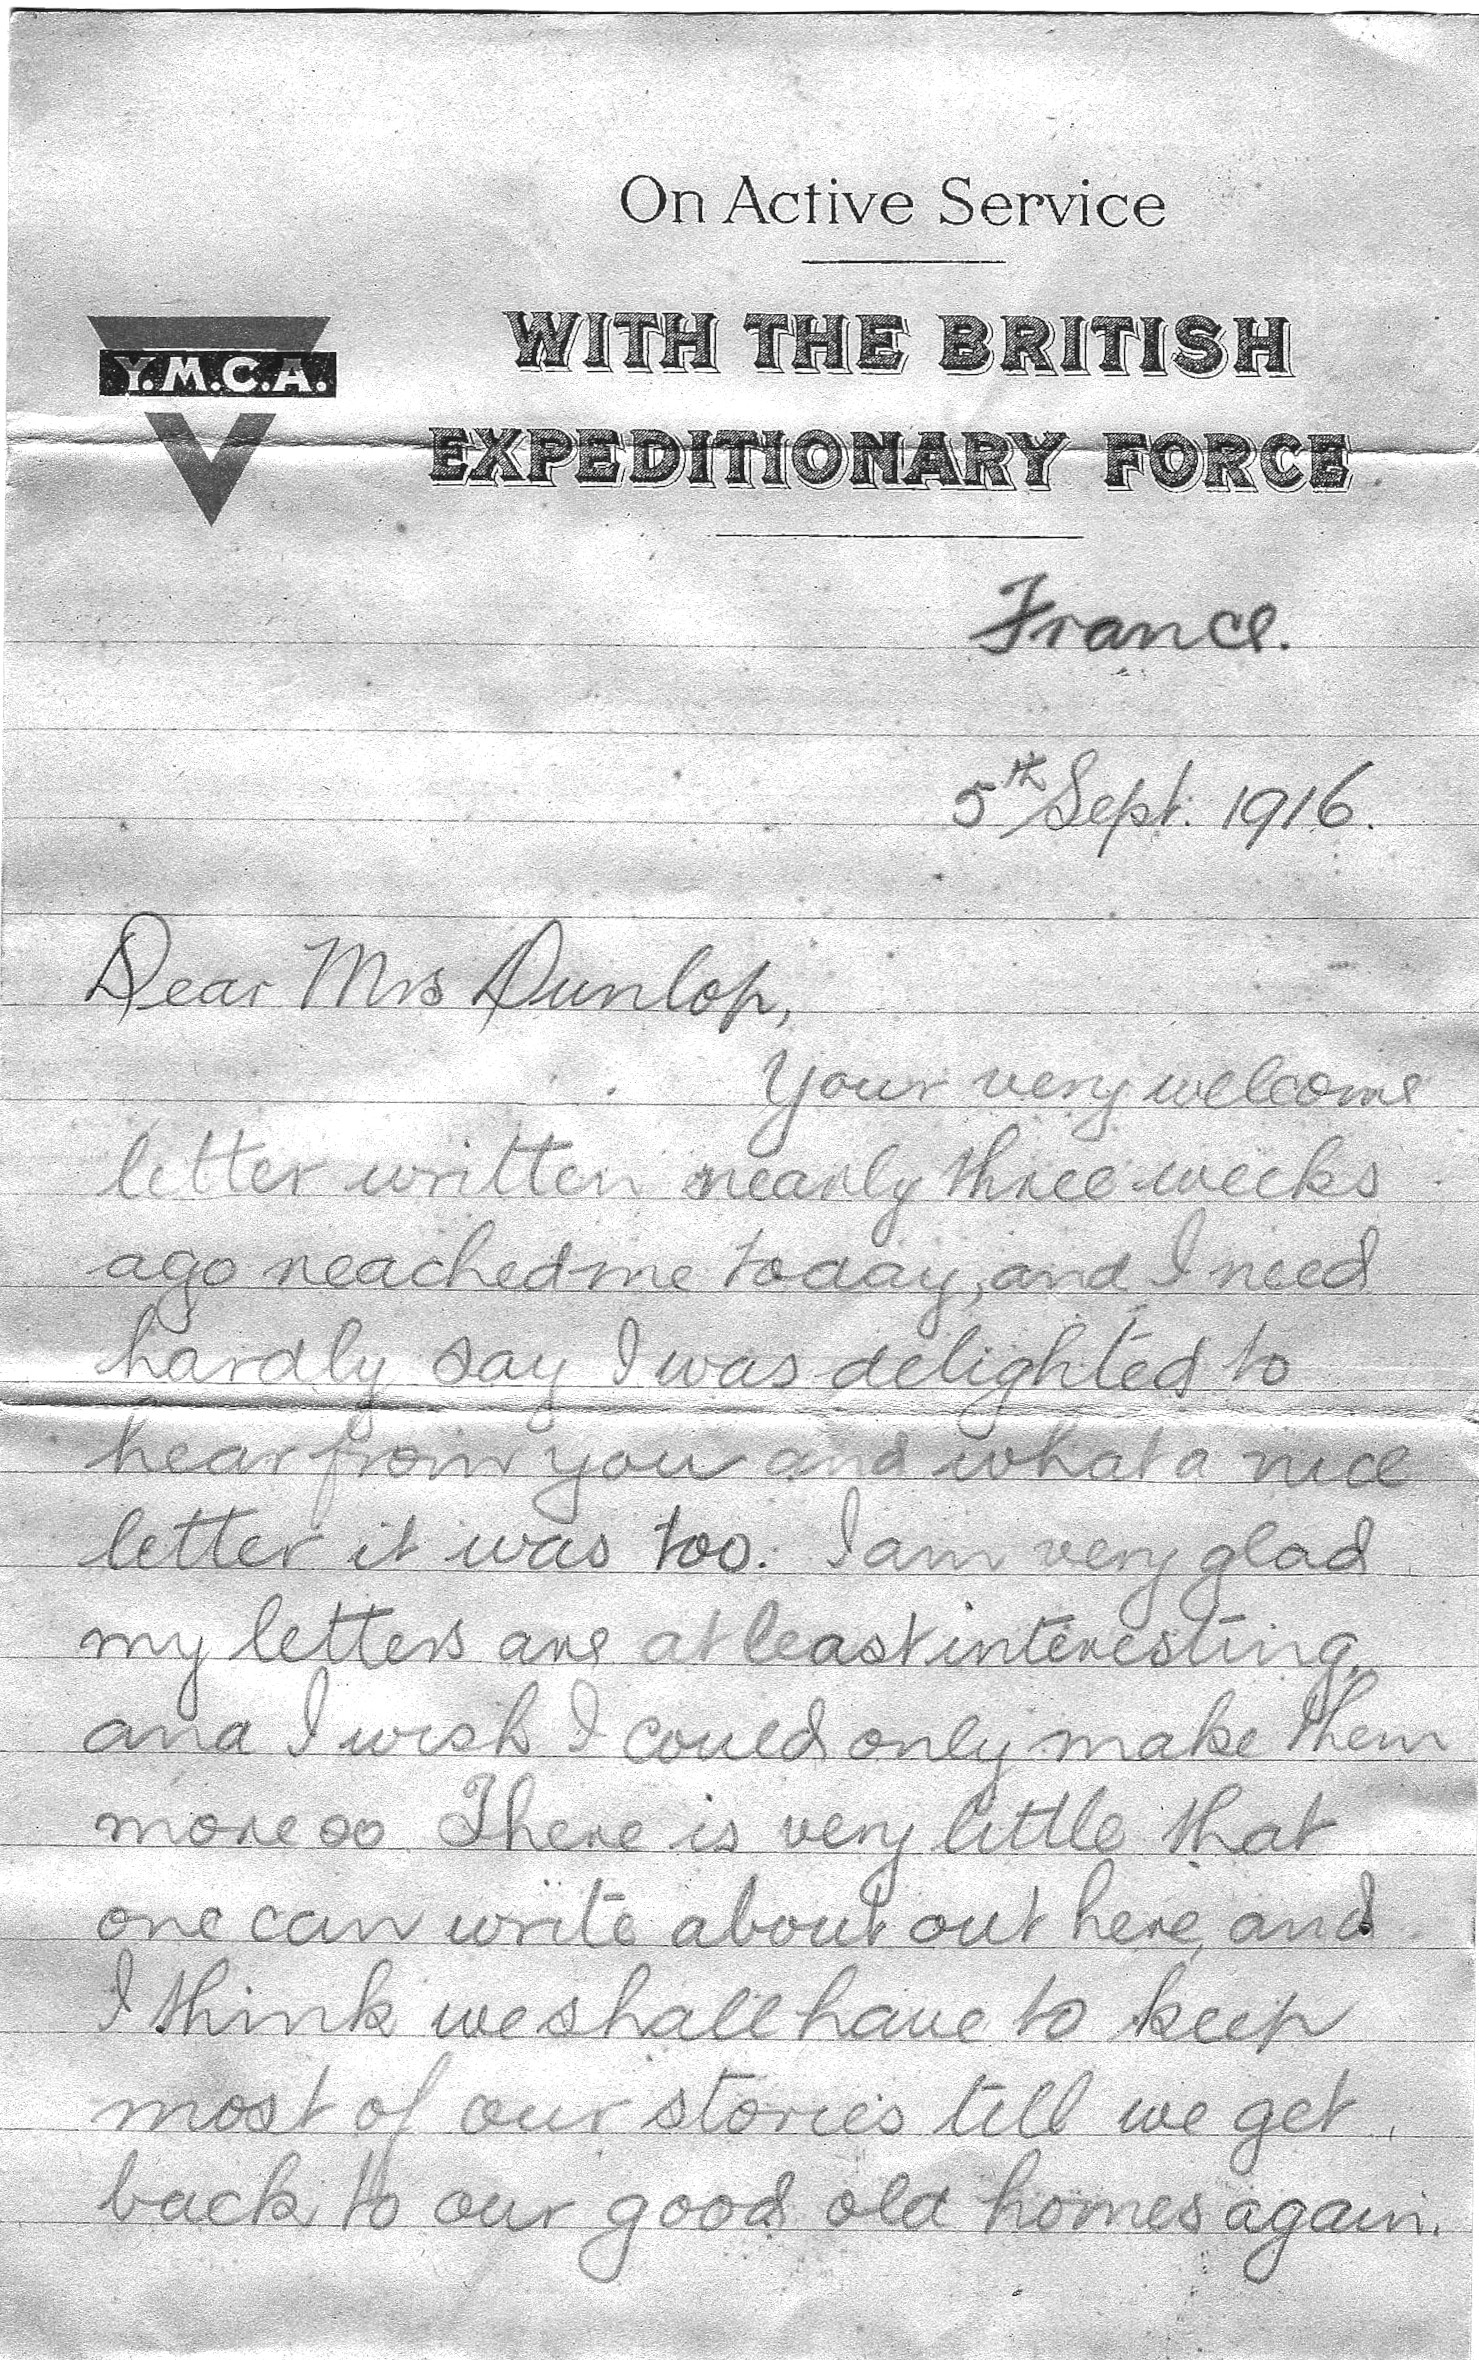 On Active Service
WITH THE BRITISH
Y.M.C.A.
EXPEDITIONARY FORCE
France.
5th Sept. 1916.
Dear Mrs Dunlop,
Your very welcome
letter written nearly three weeks
ago reached me today, and I need
hardly say I was delighted to
hear from you and what a nice
letter it was too. I am very glad
my letters are at least interesting,
and I wish I could only make them
more so There is very little that
one can write about out here, and
I think we shall have to keep
most of our stories till we get
back to our good old homes again.